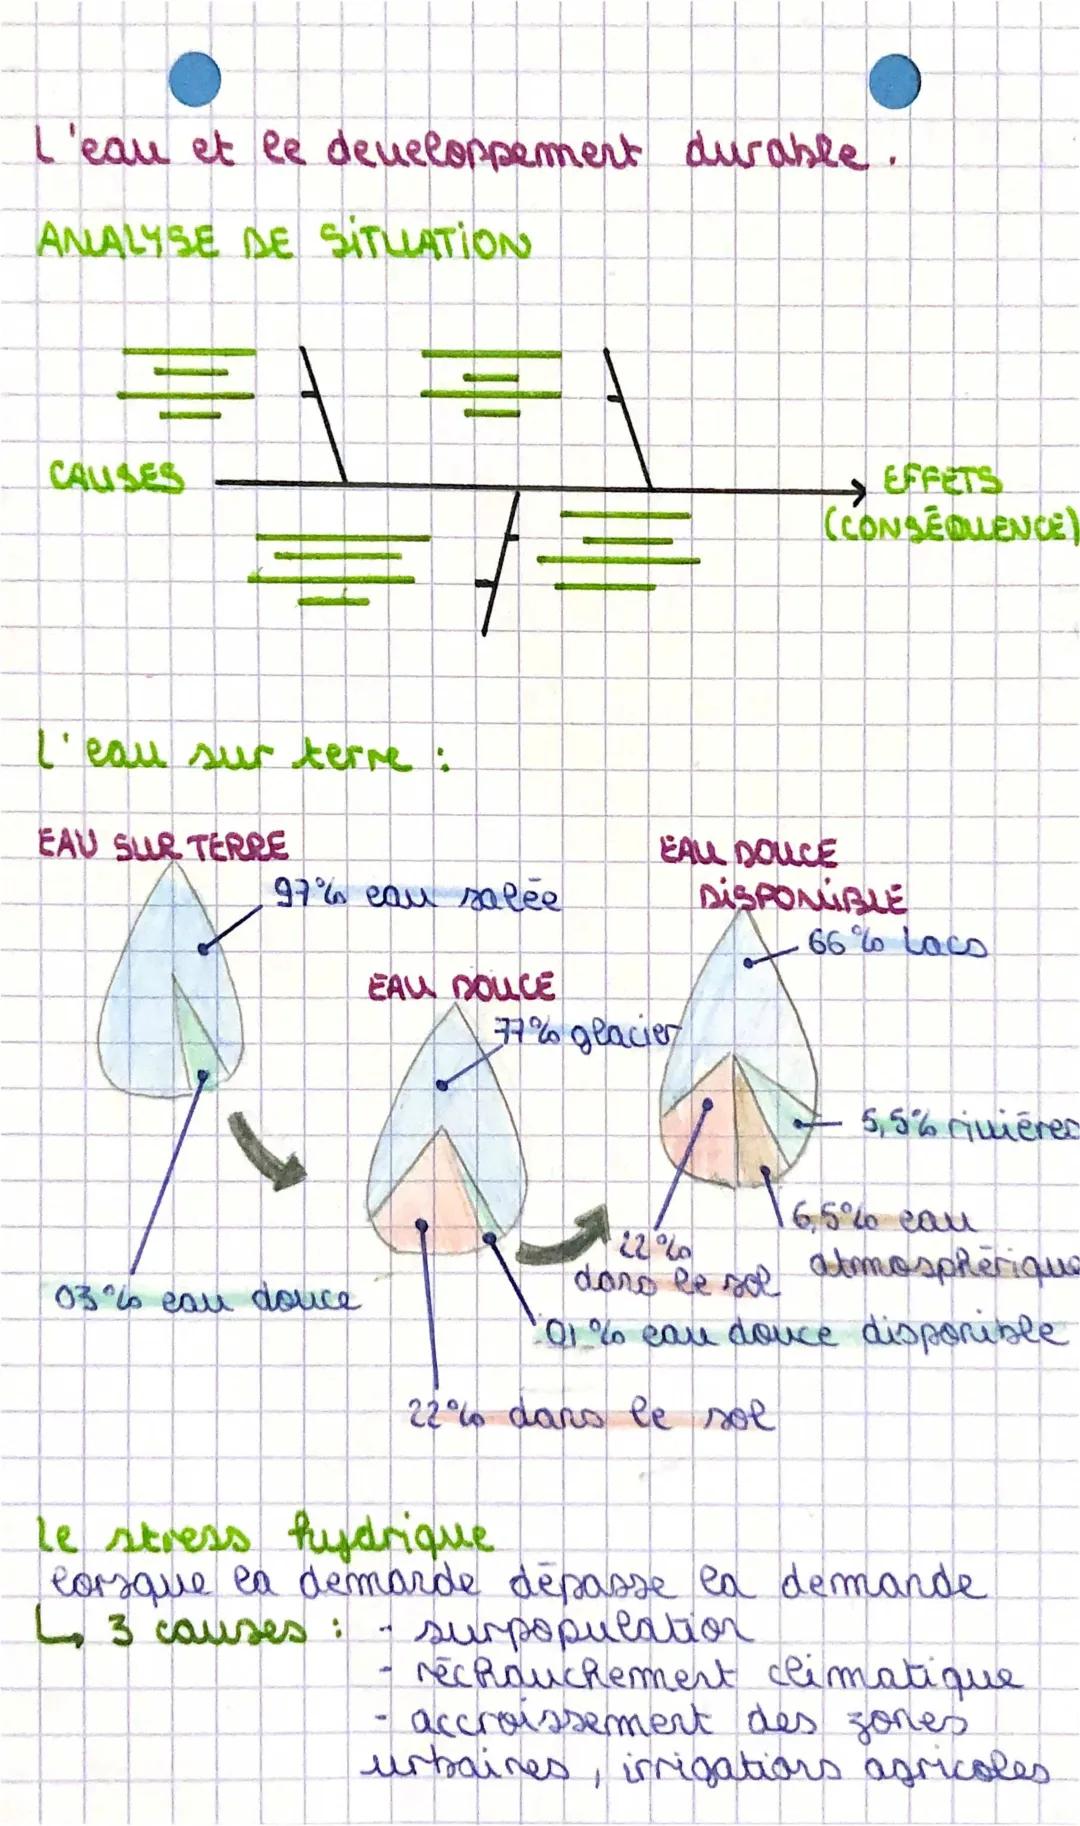 L'eau et le developpement durable.
ANALYSE DE SITUATION
CAUSES
EFFETS
(CONSÉQUENCE)
L'eau sur terre :
EAU SUR TERRE
97% eau salée
03% eau douce
EAU DOUCE
77% glacier
22% dans le sol
01% eau douce disponible
EAU DOUCE
DISPONIBLE
66% Lacs
5,5% rivières
6,5% eau
atmosphérique
22%
dans le sol
Le stress hydrique
lorsque la demande dépasse la demande
↳ 3 causes : - surpopulation
- réchauchement climatique
- accroissement des zones
urbaines, irrigations agricoles